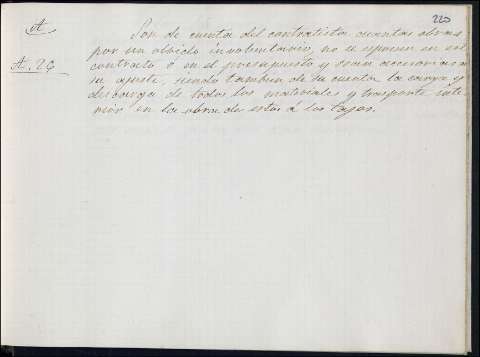 220
A
Son de cuenta del contratista cuantas obras
por un olvido involuntario, no se espresen en este
A. 24
contrato ó en el presupuesto y sean accesorias a
su ajuste, siendo tambien de su cuenta la carga y
descarga de todos los materiales y trasporte inte-
rior en la obra de estos á los tajos.